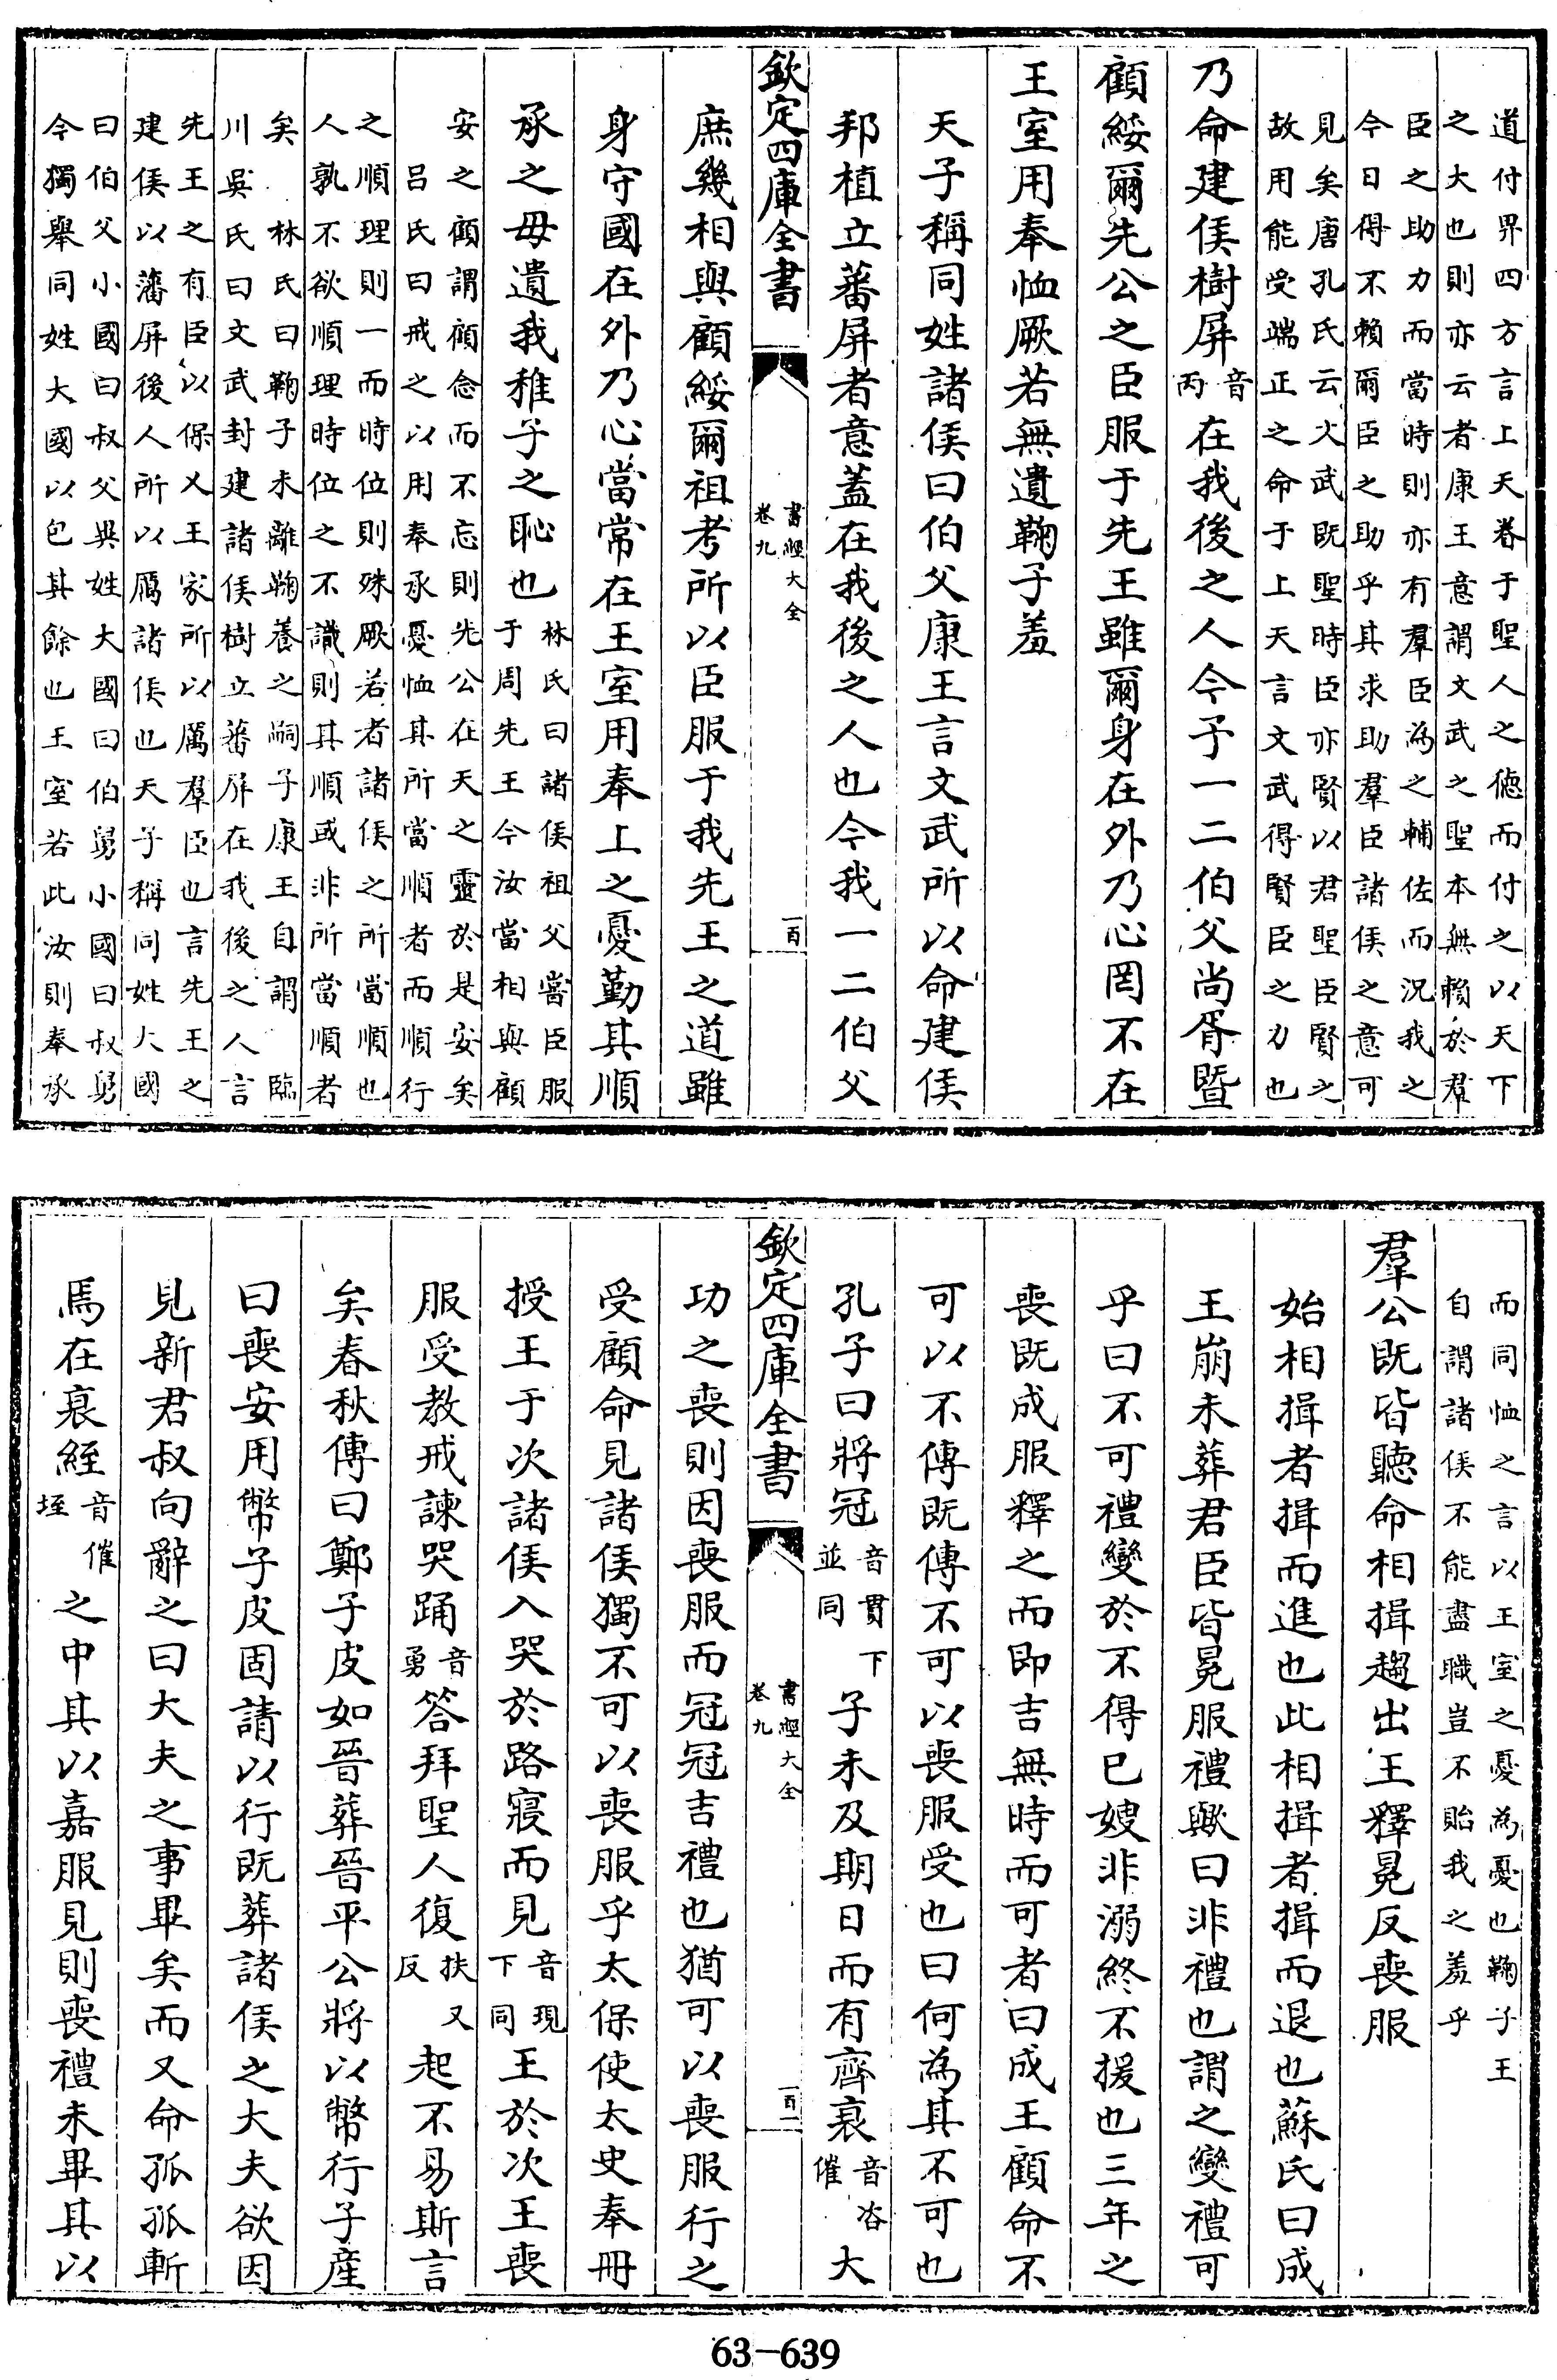 道付畀四方言上天眷于聖人之德而付之以天下
之大也則亦云者康王意謂文武之聖本無賴於羣
臣之助力而當時則亦有羣臣為之輔佐而況我之
今日得不賴爾臣之助乎其求助羣臣諸侯之意可
見矣唐孔氏云文武既聖時臣亦賢以君聖臣賢之
故用能受端正之命于上天言文武得賢臣之力也
乃命建侯樹屏音丙在我後之人今予一二伯父尚胥曁
顧綏爾先公之臣服于先王雖爾身在外乃心罔不在
王室用奉恤厥若無遺鞠子羞
天子稱同姓諸侯曰伯父康王言文武所以命建侯
邦植立蕃屏者意蓋在我後之人也今我一二伯父
欽定四庫全書
書經大全
卷九
一百
庶幾相與顧綏爾祖考所以臣服于我先王之道雖
身守國在外乃心當常在王室用奉上之憂勤其順
承之毋遺我稚子之恥也林氏曰諸侯祖父嘗臣服
于周先王今汝當相與顧
安之顧謂顧念而不忘則先公在天之靈於是安矣
呂氏曰戒之以用奉承憂恤其所當順者而順行
之順理則一而時位則殊厥若者諸侯之所當順也
人孰不欲順理時位之不識則其順或非所當順者
矣 林氏曰鞠子未離鞠養之嗣子康王自謂 臨
川吳氏曰文武封建諸侯樹立蕃屏在我後之人言
先王之有臣以保乂王家所以厲羣臣也言先王之
建侯以藩屏後人所以厲諸侯也天子稱同姓大國
曰伯父小國曰叔父異姓大國曰伯舅小國曰叔舅
今獨舉同姓大國以包其餘也王室若此汝則奉承
而同恤之言以王室之憂為憂也鞠子王
自謂諸侯不能盡職豈不貽我之羞乎
羣公既皆聽命相揖趨出王釋冕反喪服
始相揖者揖而進也此相揖者揖而退也蘇氏曰成
王崩未葬君臣皆冕服禮歟曰非禮也謂之變禮可
乎曰不可禮變於不得已嫂非溺終不援也三年之
喪既成服釋之而即吉無時而可者曰成王顧命不
可以不傳既傳不可以喪服受也曰何為其不可也
孔子曰將冠音貫下並同子未及期日而有齊衰音咨催大
欽定四庫全書
書經大全
卷九
一百一
功之喪則因喪服而冠冠吉禮也猶可以喪服行之
受顧命見諸侯獨不可以喪服乎太保使太史奉冊
授王于次諸侯入哭於路寢而見音現下同王於次王喪
服受教戒諫哭踊音勇答拜聖人復扶又反起不易斯言
矣春秋傳曰鄭子皮如晉葬晉平公將以幣行子產
曰喪安用幣子皮固請以行既葬諸侯之大夫欲因
見新君叔向辭之曰大夫之事畢矣而又命孤孤斬
焉在衰絰音催垤之中其以嘉服見則喪禮未畢其以
63-639